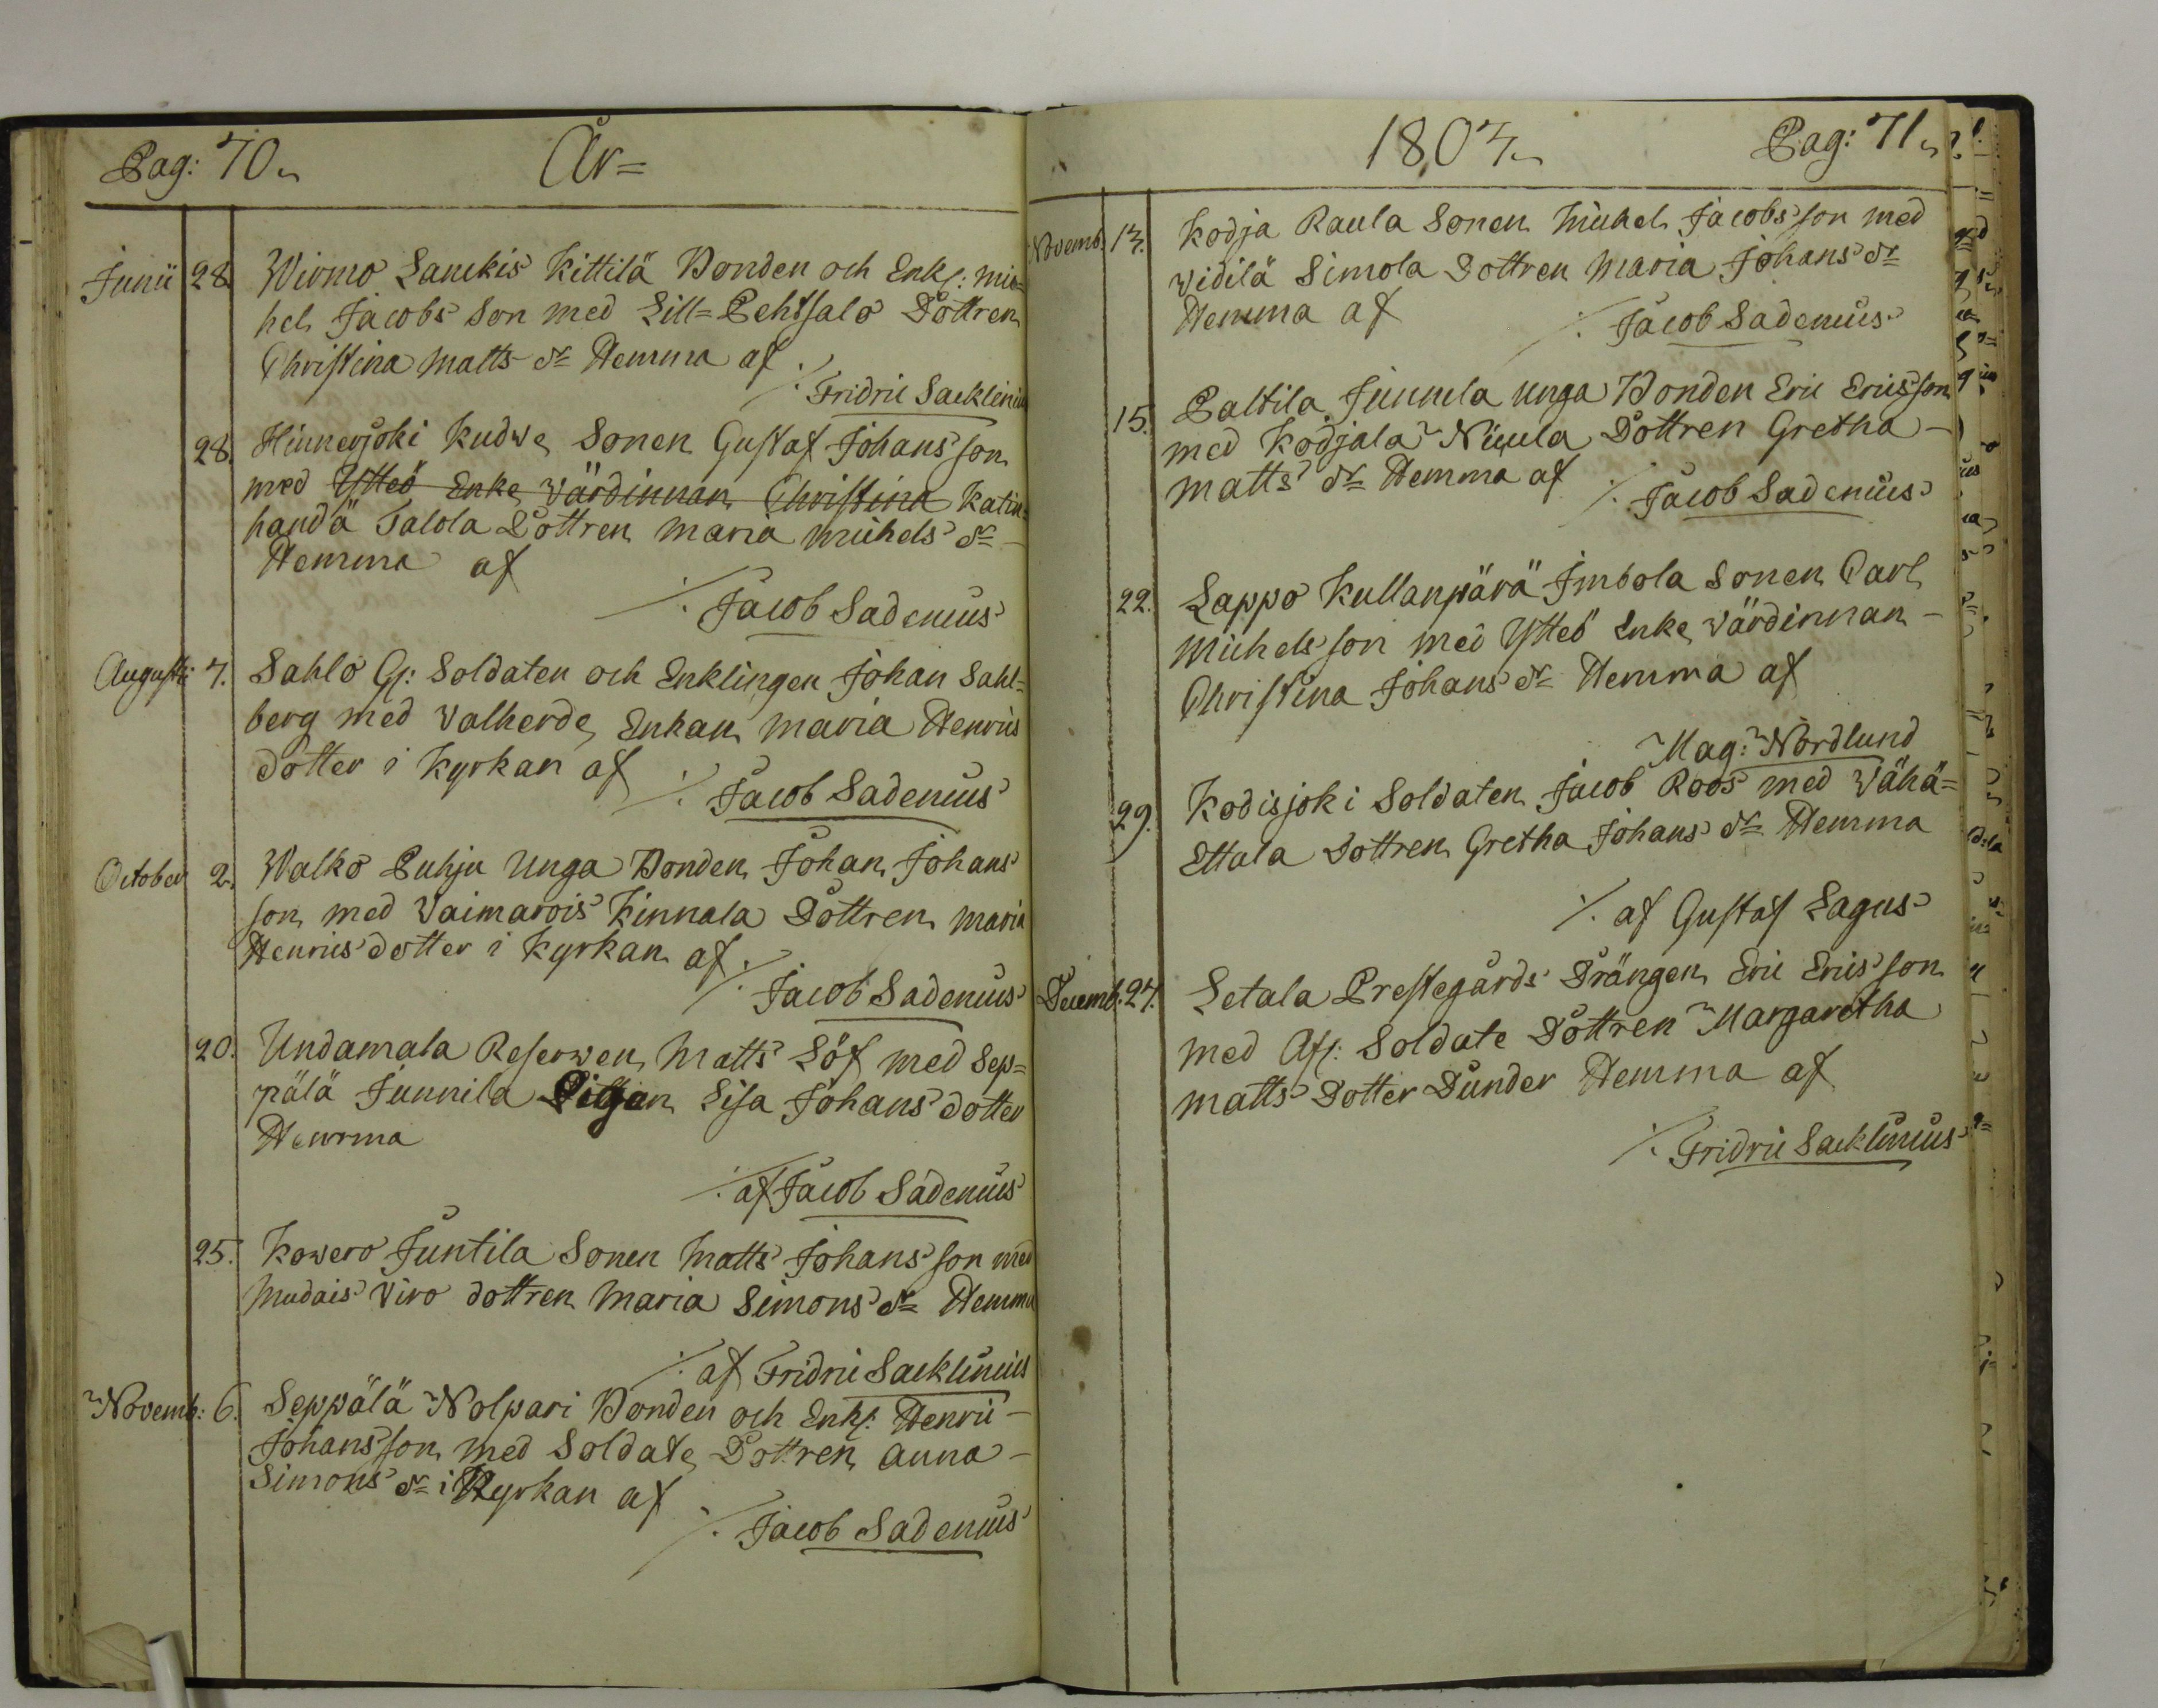 Pag: 70. År=
Junii 28. Wirmo Lanckis Kittilä Bonden och Enkl: Mic=
hel Jacobs Son med Lill=Pehtsalo Dottren
Christina Matts dr Hemma af
./. Fridric Sacklinius
28. Hinnerjoki Kudwe Sonen Gustaf Johansson
med Ytteö Enke värdinnan Christina Katin=
handä Talola Dottren Maria Michels dr
Hemma af
./. Jacob Sadenius
Augusti 7. Sahlo Gl: Soldaten och Enklingen Johan Sahl=
berg med Valherde Enkan Maria Henrics
dotter i Kyrkan af
./. Jacob Sadenius
October 2. Walko Puhju Unga Bonden Johan Johans
son med Vaimarois Kinnala Dottren Maria
Henricsdotter i Kyrkan af
./. Jacob Sadenius
20. Undamala Reserwen Matts Löf med Sep=
pälä Junnila Pigan Lisa Johans dotter
Hemma
./. af Jacob Sadenius
25. Kowero Juntila Sonen Matts Johansson med
Mudais Viro dottren Maria Simons dr Hemma
./. af Fridric Sacklinius
Novemb: 6. Seppälä Nolpari Bonden och Enkl: Henric
Johansson med Soldate Dottren Anna
Simons dr i Kyrkan af
./. Jacob Sadenius
1807. Pag: 71.
Novemb. 13. Kodja Raula Sonen Michel Jacobsson med
Widilä Simola Dottren Maria Johans dr
Hemma af
./. Jacob Sadenius
15. Paltila Junnula unga Bonden Eric Ericsson
med Kodjala Nicula Dottren Gretha
Matts dr Hemma af
./. Jacob Sadenius
22. Lappo Kullanpärä Imbola Sonen Carl
Michelsson med Ytteö Enke Värdinnan
Christina Johans dr Hemma af
Mag: Nordlund
29. Kodisjoki Soldaten Jacob Roos med Vähä=
Ettala Dottren Gretha Johans dr Hemma
./. af Gustaf Lagus
Decemb. 27. Letala Prestegårds Drängen Eric Ericsson
med Afl: Soldate Dottren Margaretha
Matts Dotter Dunder Hemma af
./. Fridric Sacklinius